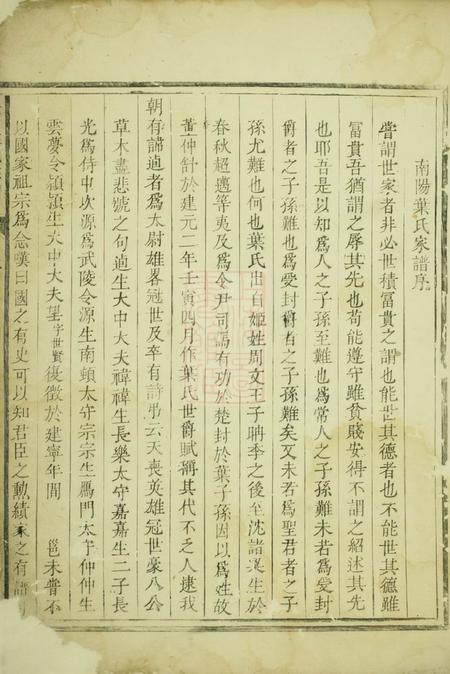 南陽葉氏家譜序
嘗謂世家者非必世積富貴之謂也能世其德者也不能世其德雖
富貴吾猶謂之辱其先也苟能遵守雖貧賤安得不謂之紹述其先
也耶吾是以知為人之子孫至難也為常人之子孫難未若為受封
爵者之子孫難也為受封爵者之子孫難矣又未若為聖君者之子
孫尤難也何也葉氏出自姬姓周文王子聃季之後至沈諸梁生於
春秋超邁等夷及為令尹司馬有功於楚封於葉子孫因以為姓故
董仲舒於建元二年壬寅四月作葉氏世爵賦稱其代不乏人逮我
朝有諱逈者為太尉雄畧冠世及卒有詩弔云天喪英雄冠世豪八公
草木盡悲號之句逈生大中大夫禕禕生長樂太守嘉嘉生二子長
光為侍中次源為武陵令源生南頓太守宗宗生鴈門太守仲仲生
雲夢令頴頴生大中大夫望字世賢復徵於建寧年間 邕未嘗不
以國家祖宗為念嘆曰國之有史可以知君臣之勳績家之有譜